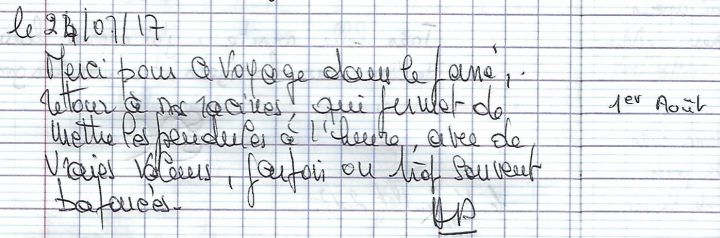 le 24/07/17
Merci pour ce voyage dans le passé,
retour à nos racines, qui permet de
mettre les pendules à l'heure, avec de
vraies valeurs, parfois ou trop souvent
bafouées.
1er Août